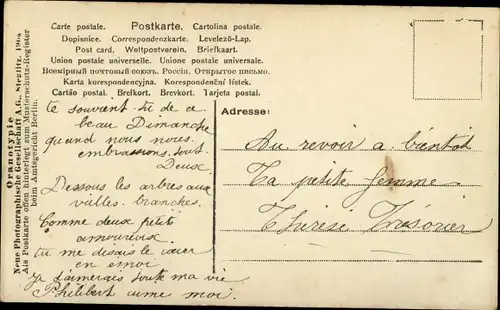 Oranotypie
Neue Photographische Gesellschaft A.G., Steglitz, 190
Als Postkarte offen hinterlegt zum Musterschutz-Register
beim Amtsgericht Berlin.
Carte postale. Postkarte. Cartolina postale.
Dopisnice. Correspondenzkarte. Levelező-Lap.
Post card. Weltpostverein. Briefkaart.
Union postale universelle. Unione postale universale.
Всемірный почтовый союзъ. Россія. Открытое письмо.
Karta korespondencyjna. Korespondenční lístek.
Cartão postal. Brefkort. Brevkort. Tarjeta postal.
te souvent tu de ce
beau Dimanche
quand nous nous
embrassions tout
Deux
Dessous les arbres aux
vielles branches.
Comme deux petit
amoureux
tu me desais le cœur
en emoi
Je t'aimerais toute ma vie
Philibert aime moi.
Adresse:
Au revoir a bientot
Ta petite femme
Thirise Trésorier